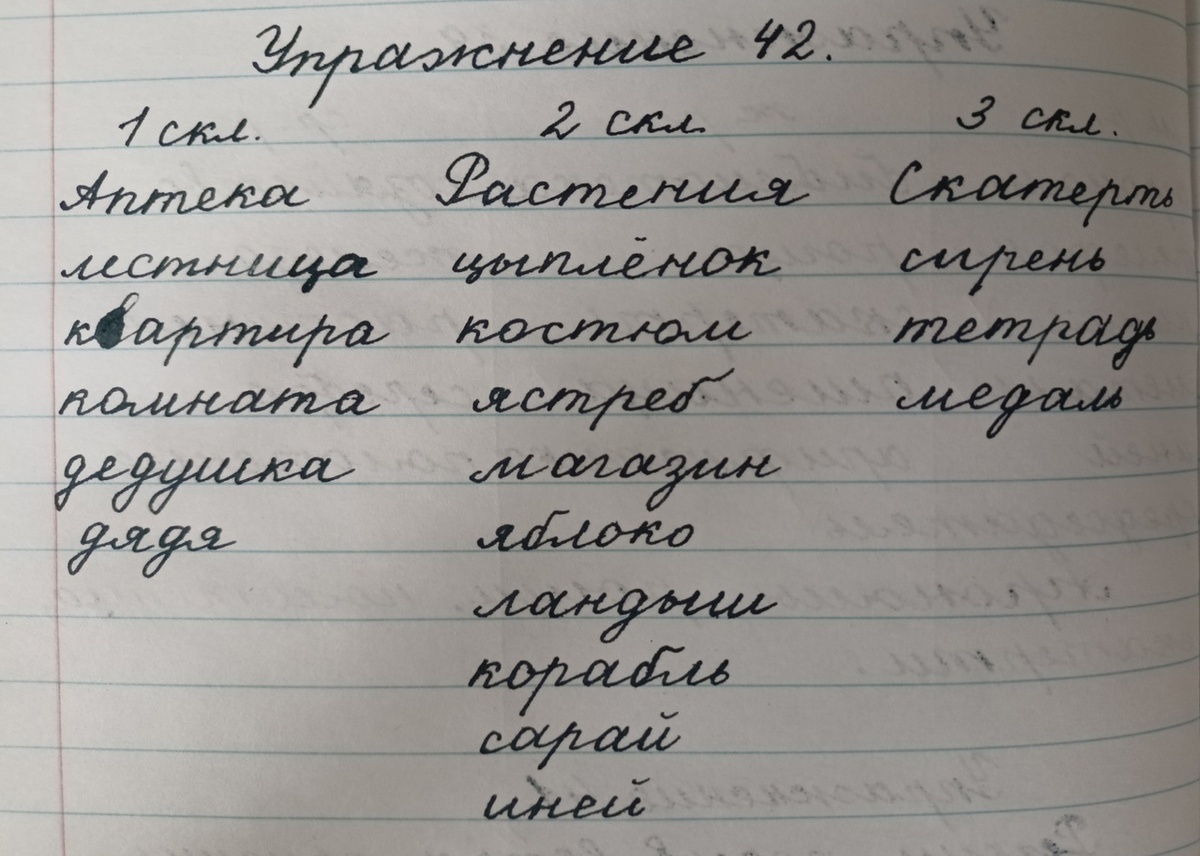 Упражнение 42.
1 скл. 2 скл. 3 скл.
Аптека Растения Скатерть
лестница цыплёнок сирень
квартира костюм тетрадь
комната ястреб медаль
дедушка магазин
дядя яблоко
ландыш
корабль
сарай
иней